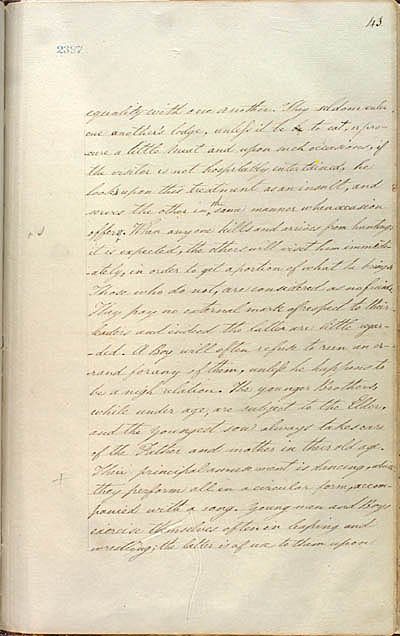 43
2397
equality with one another. They seldom enter
one another's lodge, unless it be to eat, or pro-
-cure a little meat and upon such occasions, if
the visiter is not hospitably entertained, he
looks upon this treatment as an insult, and
serves the other in the same manner when occasion
offers. When any one kills and arrives from hunting
it is expected, the others will visit him immedi-
-ately, in order to get a portion of what he brings
Those who do not, are considered as no friends
They pay no external mark of respect to their
leaders and indeed the latter are little regar-
-ded. A Boy will often refuse to run an er-
-rand for any of them, unless he happens to
be a nigh relation. The younger Brothers,
while under age, are subject to the Elder,
and the youngest son always takes care
of the Father and mother in their old age.
Their principal amusement is dancing, which
they preform all in a circular form, accom-
panied with a song. Young men and Boys
exercise themselves often on leaping and
wrestling; the latter is of use to them upon